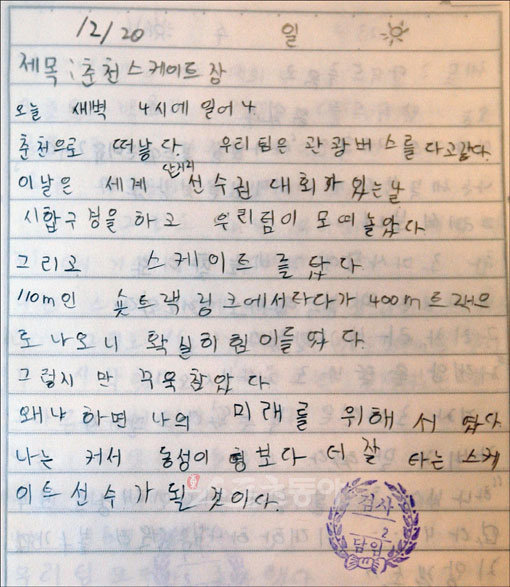 12/20 일
제목:춘천스케이트장
오늘 새벽 4시에 일어4
춘천으로 떠났다. 우리팀은 관광버스를 타고갔다.
단거리
이날은 세계 선수권 대회가 있는날
시합구경을 하고 우리팀이 모여놀았다
그리고 스케이트를 탔다
110m인 숏트랙링크에서타다가 400m트랙으
로 나오니 확실히힘이들었다.
그렇지만 꾸욱참았다
왜냐하면 나의 미래를 위해서 탔다
나는 커서 동성이형보다 더잘 타는 스케
이트선수가될것이다.
검사
2
담임